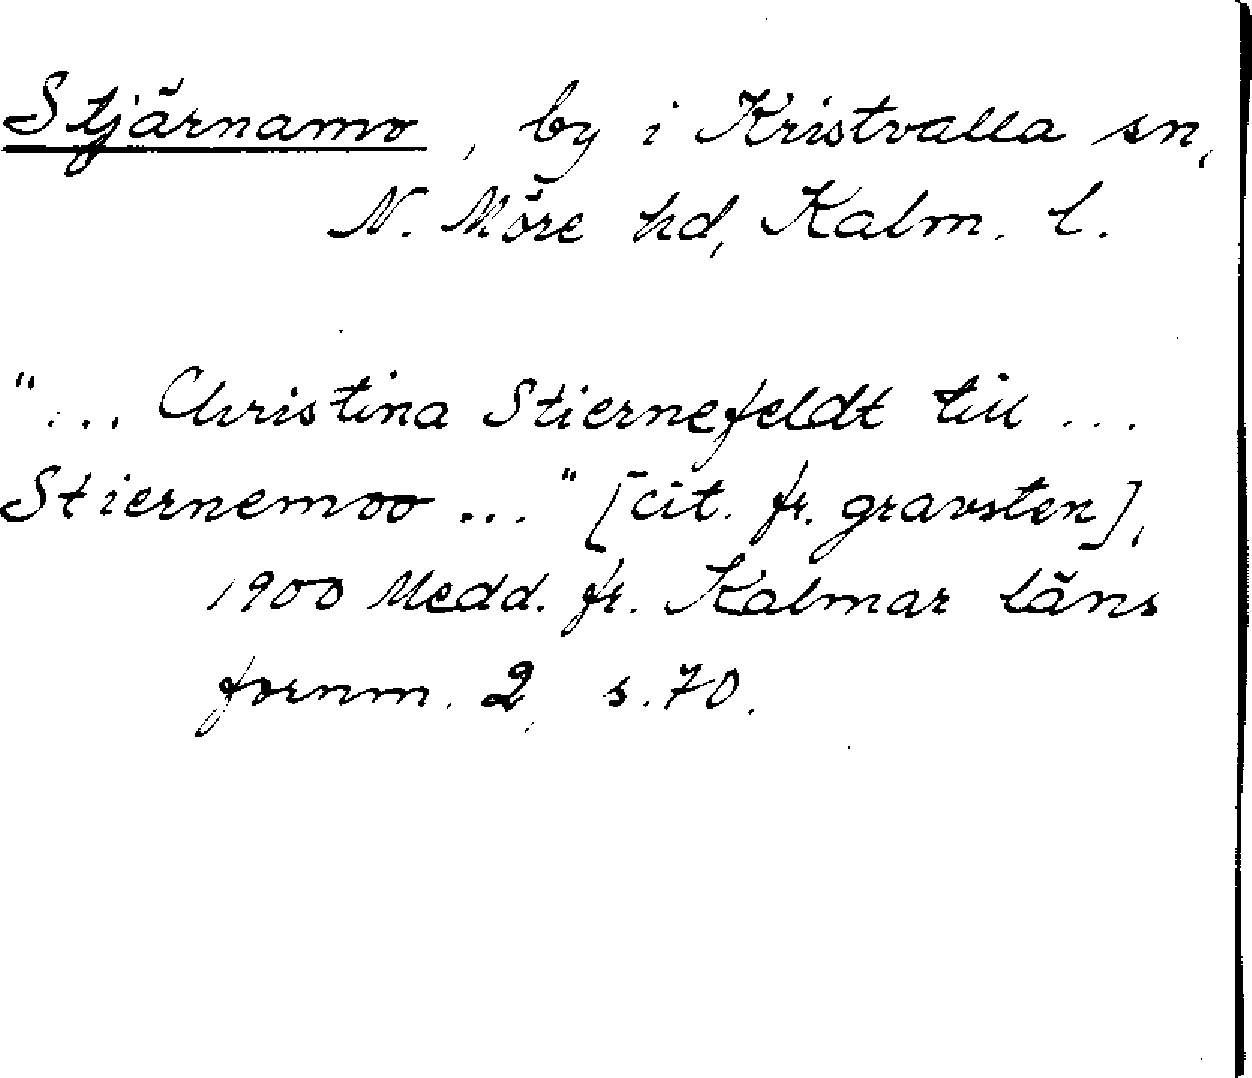 Stjärnamo, by i Kristvalla sn,
N. Möre hd, Kalm. l.
"... Christina Stiernefeldt till ...
Stiernemoo ..." [cit. fr. gravsten],
1900 Medd. fr. Kalmar läns
fornm. 2, s. 70.